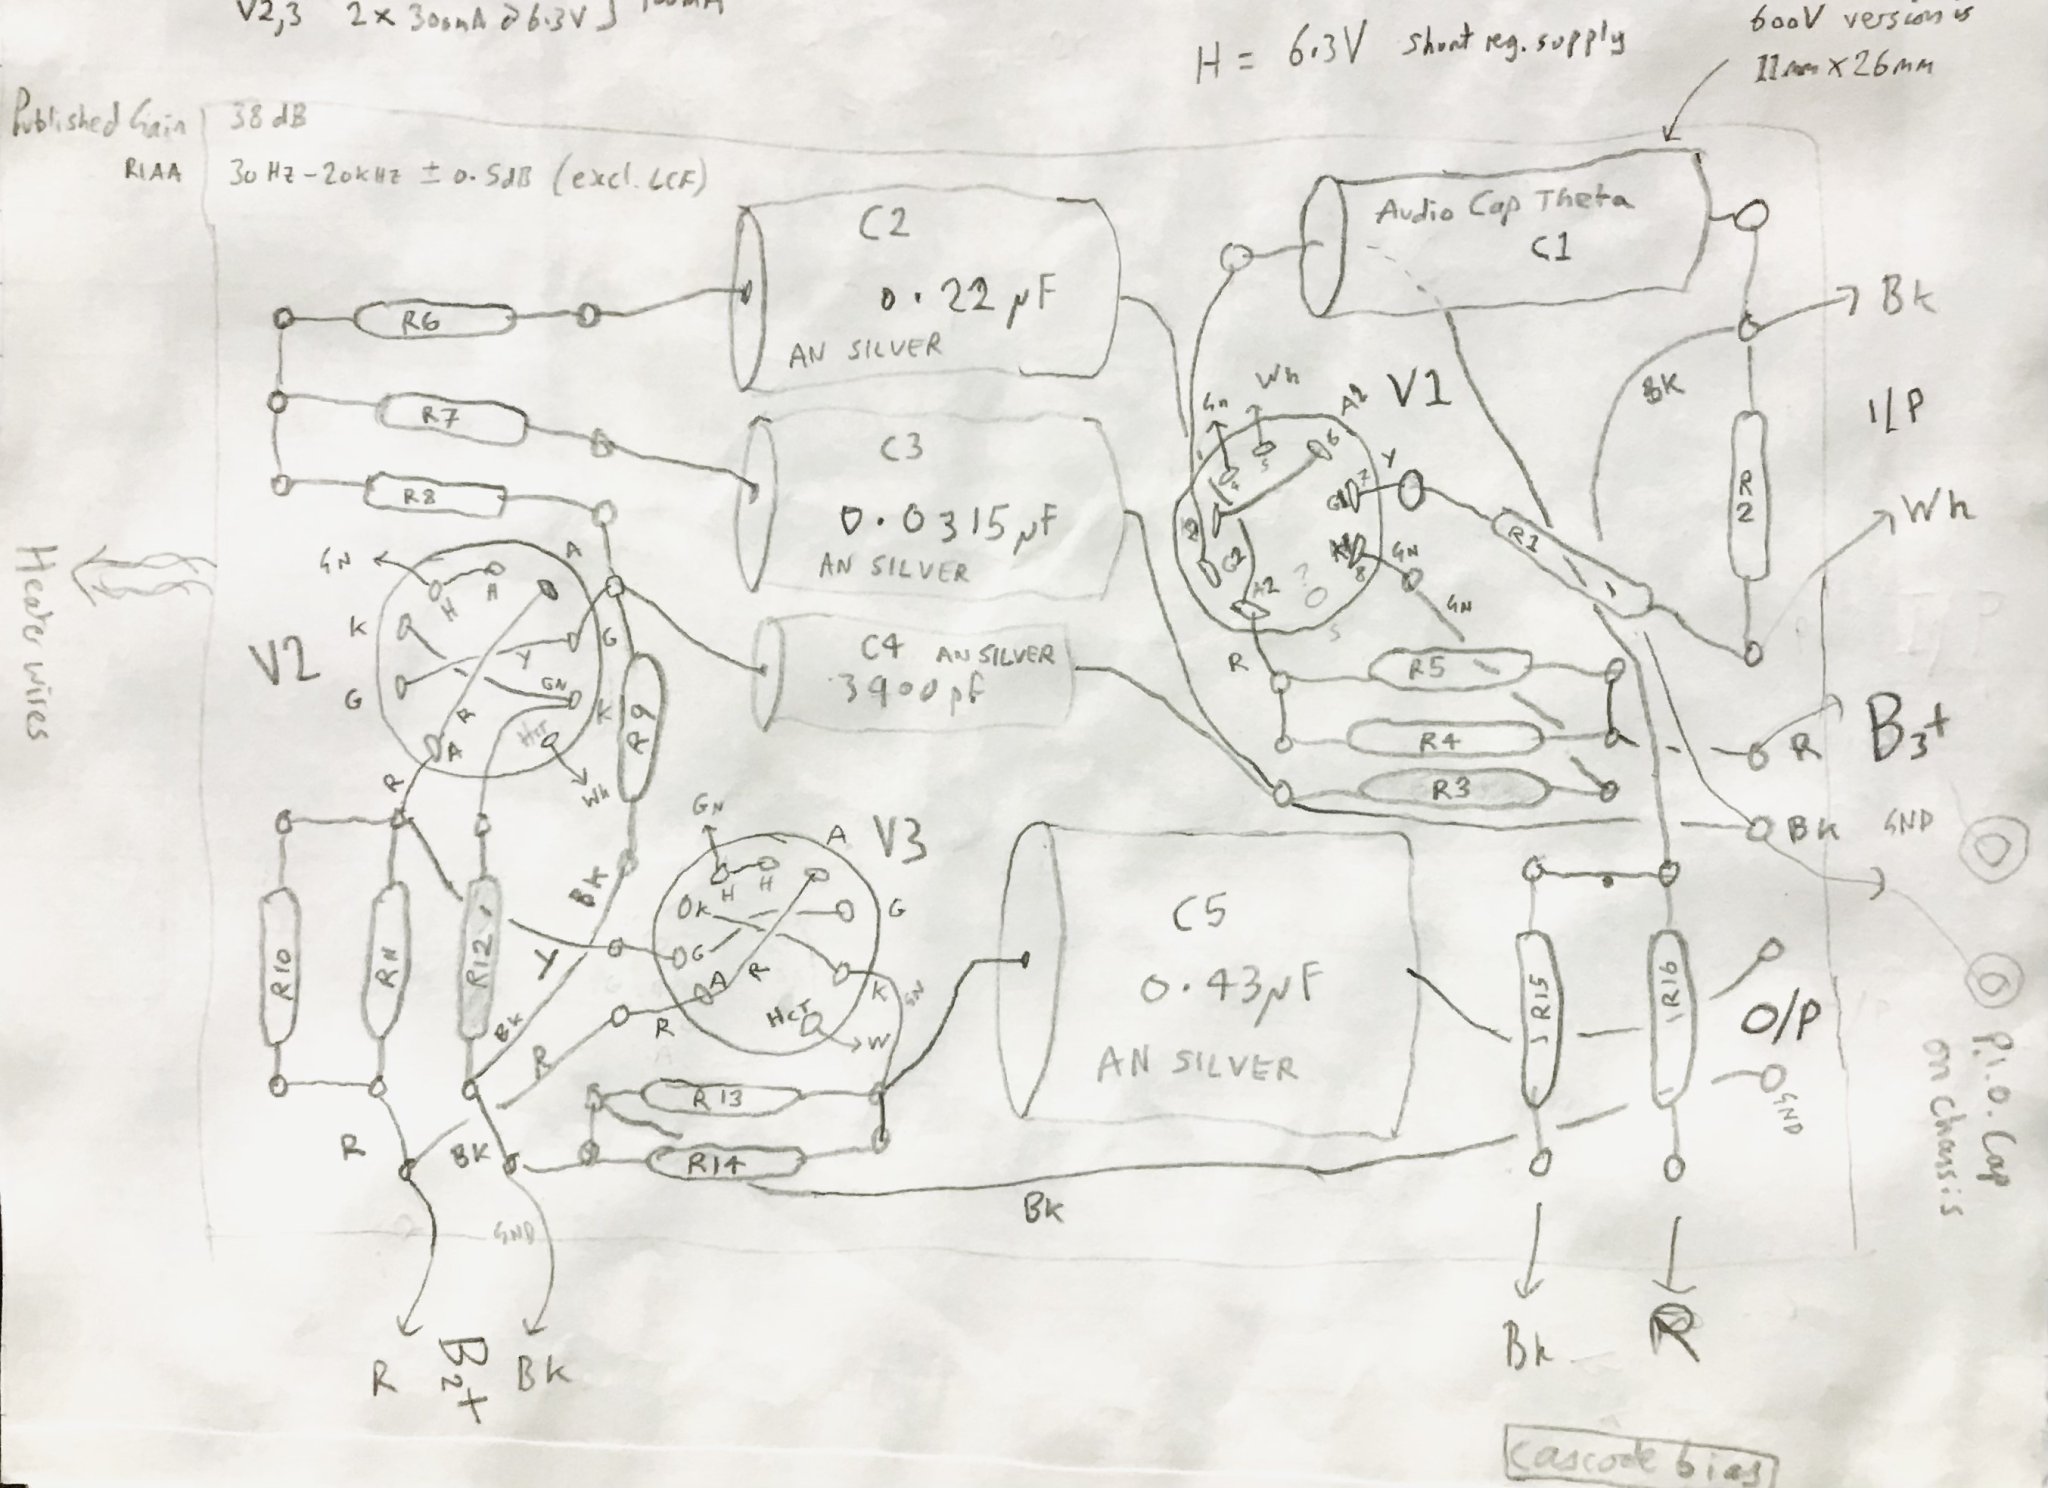 V2,3 2 x 300mA @ 6.3V
H = 6.3V shunt reg. supply
600V version is
11mm x 26mm
Published Gain 38 dB
RIAA 30Hz-20kHz ± 0.5dB (excl. LCF)
Audio Cap Theta
C1
C2
0.22 µF
AN SILVER
R6
Bk
Bk
V1
Wh
Gn
A2
5
6
Y
7
G1
R7
C3
0.0315 µF
AN SILVER
R2
I/P
Wh
R8
R1
G2
A2
?
8
GN
GN
S
Heater wires
GN
H
H
A
K
G
Y
GN
K
G
R
A
HCT
Wh
V2
R9
C4 AN SILVER
3900pF
R
R5
R4
R3
R
B3+
Bk
GND
R
R10
R11
R12
Bk
Y
Bk
R
GN
A
V3
H
H
K
G
G
A
R
K
GN
HCT
W
R
C5
0.43µF
AN SILVER
R15
R16
O/P
GND
P.i.o. Cap
on chassis
R13
R14
R
Bk
GND
Bk
R
B2+
Bk
Bk
R
cascode bias